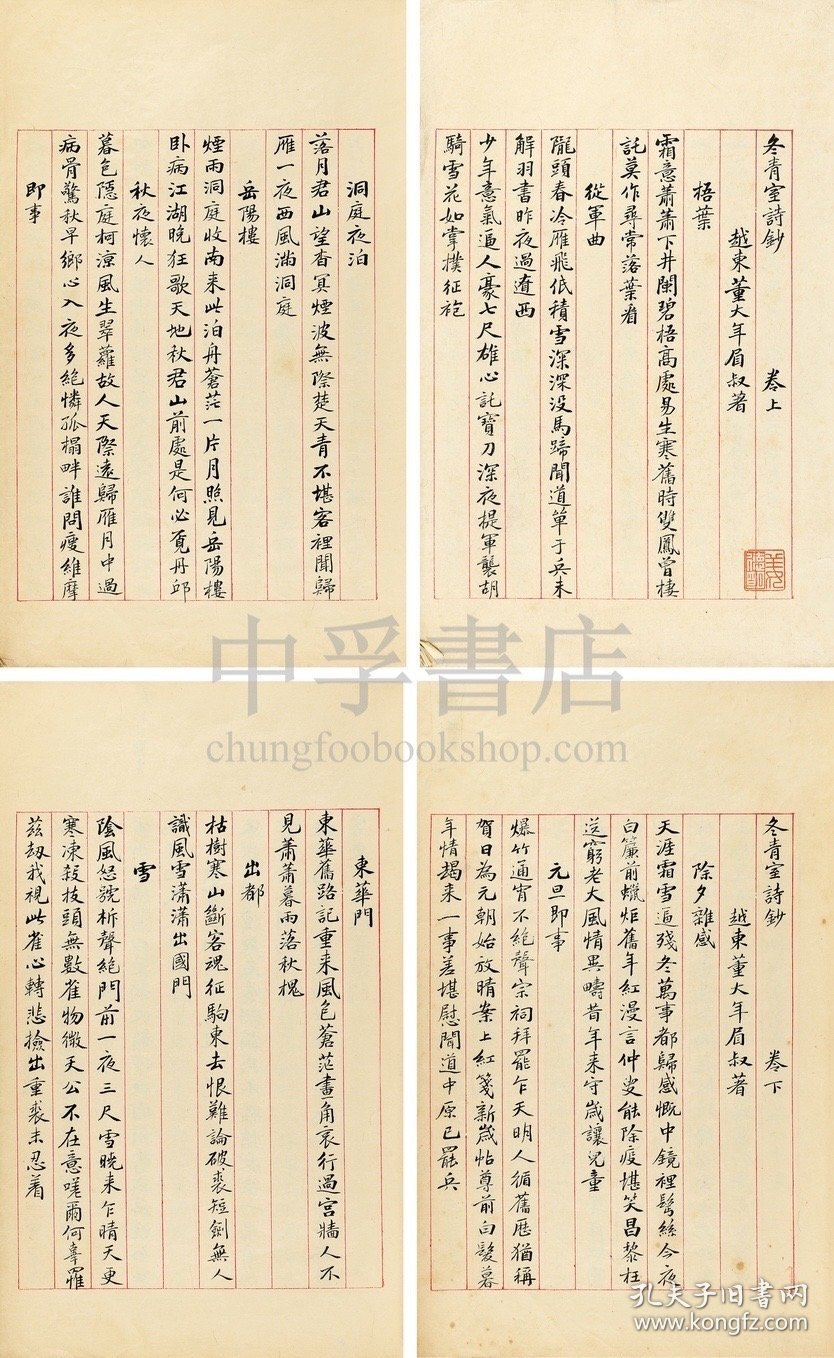 冬青室詩鈔 卷上
越東董大年眉叔著
梧葉
霜意蕭蕭下井闌碧梧高處易生寒舊時雙鳳曾棲
託莫作尋常落葉看
從軍曲
隴頭春冷雁飛低積雪深深没馬蹄聞道單于兵未
解羽書昨夜過遼西
少年意氣逼人豪七尺雄心託寶刀深夜提軍襲胡
騎雪花如掌撲征袍
洞庭夜泊
落月君山望杳冥煙波無際楚天青不堪客裡聞歸
雁一夜西風滿洞庭
岳陽樓
煙雨洞庭收南来此泊舟蒼茫一片月照見岳陽樓
卧病江湖晚狂歌天地秋君山前處是何必覓丹邱
秋夜懷人
暮色隱庭柯涼風生翠蘿故人天際遠歸雁月中過
病骨驚秋早鄉心入夜多絕憐孤榻畔誰問瘦維摩
即事
冬青室詩鈔 卷下
越東董大年眉叔著
除夕雜感
天涯霜雪逼殘冬萬事都歸感慨中鏡裡鬢絲今夜
白簾前蠟炬舊年紅漫言仲叟能除疫堪笑昌黎枉
送窮老大風情異疇昔年来守歲讓兒童
元旦即事
爆竹通宵不絕聲宗祠拜罷乍天明人循舊歷猶稱
賀日為元朝始放晴案上紅箋新歲帖尊前白髮暮
年情朅来一事差堪慰聞道中原已罷兵
東華門
東華舊路記重来風色蒼茫畫角哀行過宮牆人不
見蕭蕭暮雨落秋槐
出都
枯樹寒山斷客魂征駒東去恨難論破裘短劍無人
識風雪瀟瀟出國門
雪
陰風怒號柝聲絕門前一夜三尺雪晓来乍晴天更
寒凍殺枝頭無數雀物微天公不在意嗟爾何辜罹
茲劫我視此雀心轉悲撿出重裘未忍着
中孚書店
chungfoobookshop.com
孔夫子旧书网
www.kongfz.com